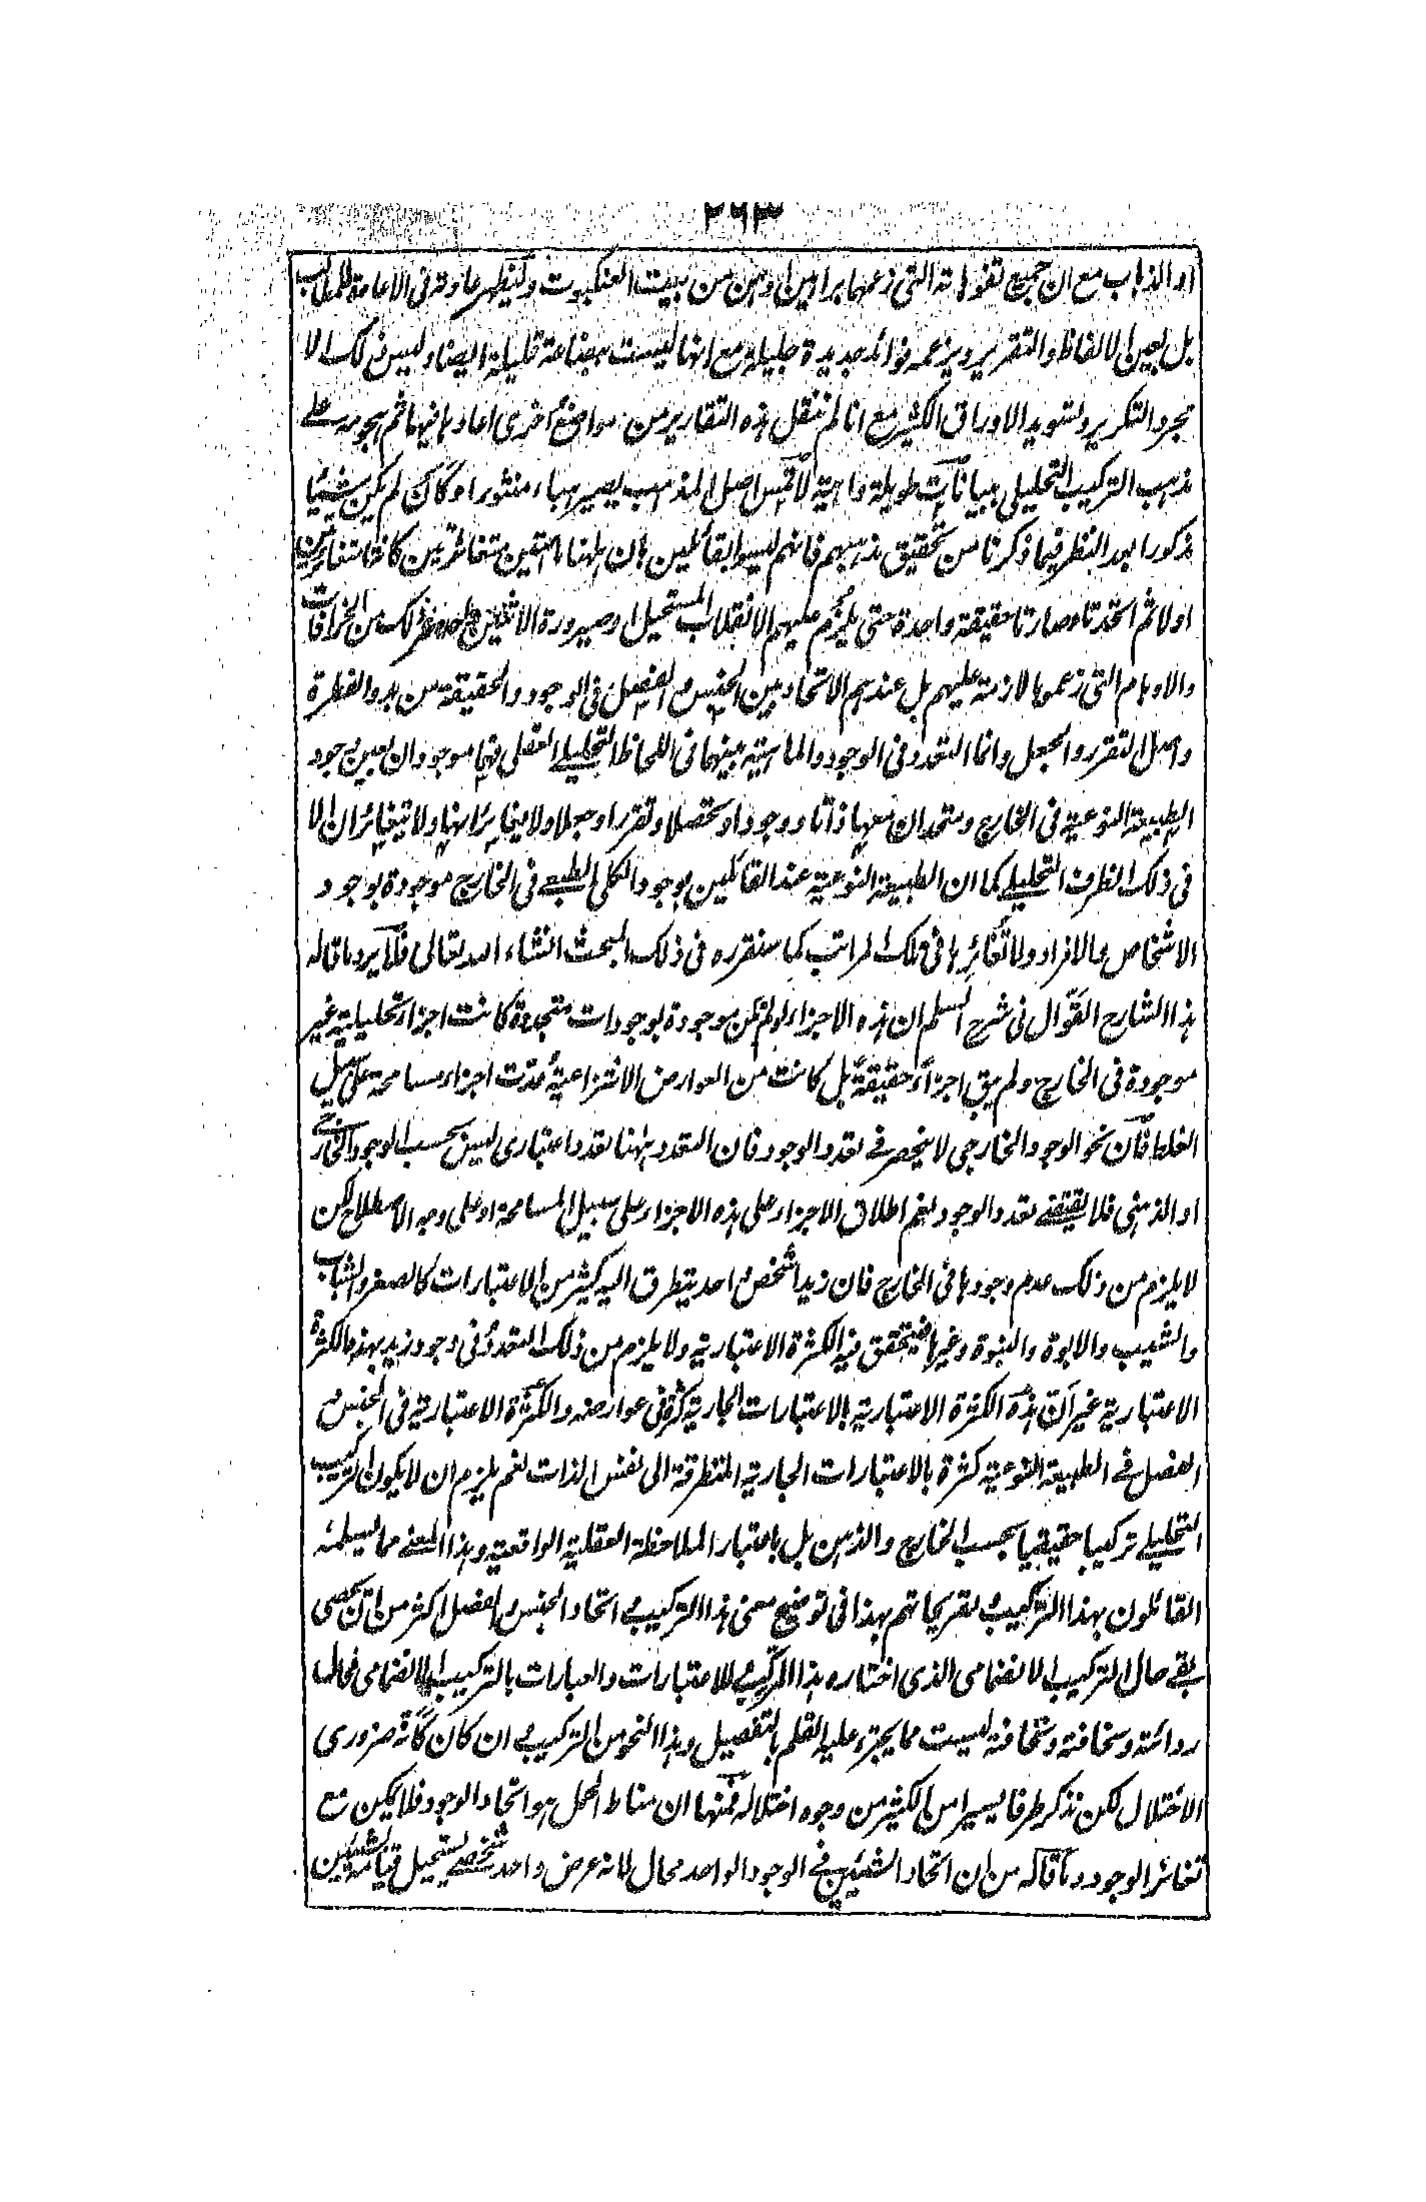 ٢٦٣
او الذهاب مع ان جميع تفوهاته التى زعمها براهين اوهن من بيت العنكبوت وليظهر عادته فى الاعادة للمطالب
بل بعين الالفاظ والتقرير ويزعمه فوائد جديدة جليلة مع انها ليست بضاعة قليلة ايضا وليس ذلك الا
مجرد التكرير وتسويد الاوراق الكثير مع انا لم ننقل هذه التقارير من مواضع اخرى اعادها فيها ثم هجومه على
مذهب التركيب التحليلى ببيانات طويلة واهية لا تمس اصل المذهب يصير هباء منثورا وكان لم يكن شيئا
مذكورا بعد النظر فيما ذكرنا من تحقيق مذهبهم فانهم ليسوا بقائلين بان ههنا ماهيتين متغائرتين كانتا متغائرتين
اولا ثم اتحدتا وصارتا حقيقة واحدة حتى يلزم عليهم الانقلاب المستحيل او صيرورة الاثنين واحدا وغير ذلك من الخرافات
والاوهام التى زعموها لازمة عليهم بل عندهم الاتحاد بين الجنس والفصل فى الوجود والحقيقة من بدو الفطرة
واصل التقرر والجعل وانما التعدد فى الوجود والماهية بينهما فى اللحاظ التحليلى العقلى فهما موجودان بعين وجود
الطبيعة النوعية فى الخارج ومتحدان معها ذاتا ووجودا وتحصلا وتقررا وجعلا ولا يغايرانها ولا يتغايران الا
فى ذلك الظرف التحليلى كما ان الطبيعة النوعية عند القائلين بوجود الكلى الطبعى فى الخارج موجودة بوجود
الاشخاص والافراد ولا تغائرها فى تلك المراتب كما سنقرره فى ذلك المبحث انشاء الله تعالى فلا يرد ما قاله
هذا الشارح القوال فى شرح السلم ان هذه الاجزاء لو لم تكن موجودة بوجودات متعددة كانت اجزاء تحليلية غير
موجودة فى الخارج ولم يبق اجزاء حقيقة بل كانت من العوارض الانتزاعية عدت اجزاء مسامحة على سبيل
الغلط فان نحو الوجود الخارجى لا ينحصر فى تعدد الوجود فان التعدد ههنا تعدد اعتبارى ليس بحسب الوجود الخارجى
او الذهنى فلا يقتضى تعدد الوجود نعم اطلاق الاجزاء على هذه الاجزاء على سبيل المسامحة او على وجه الاصطلاح لكن
لا يلزم من ذلك عدم وجودها فى الخارج فان زيدا شخص واحد يتطرق اليه كثير من الاعتبارات كالصغر والشباب
والشيب والابوة والبنوة وغيرها فيتحقق فيه الكثرة الاعتبارية ولا يلزم من ذلك التعدد فى وجود زيد بهذه الكثرة
الاعتبارية غير ان هذه الكثرة الاعتبارية بالاعتبارات الجارية كثرة فى عوارضه والكثرة الاعتبارية فى الجنس و
الفصل فى الطبيعة النوعية كثرة بالاعتبارات الجارية المتطرقة الى نفس الذات نعم يلزم ان لا يكون التركيب
التحليلى تركيبا حقيقيا بحسب الخارج والذهن بل باعتبار الملاحظة العقلية الواقعية وهذا المعنى مما يسلمه
القائلون بهذا التركيب وتصريحاتهم بهذا فى توضيح معنى هذا التركيب و اتحاد الجنس والفصل اكثر من ان تحصى
بقى حال التركيب الانضمامى الذى اختاره هذا المركب للاعتبارات والعبارات بالتركيب الانضمامى فحال
ردائته وسخافته وسخافته ليست مما يجترء عليه القلم بالتفصيل وهذا النحو من التركيب و ان كان كانه ضرورى
الاختلال لكن نذكر طرفا يسيرا من الكثير من وجوه اختلاله فمنها ان مناط الحمل هو اتحاد الوجود فلا يمكن مع
تغائر الوجود وما قاله من ان اتحاد الشيئين فى الوجود الواحد محال لانه عرض واحد شخصى يستحيل قيامه بشيئين